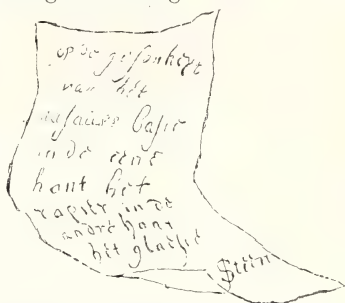 op de gesonheyt
van het
nassause basie
in de eene
hant het
rapier in de
andre hant
het glaesie
Steen